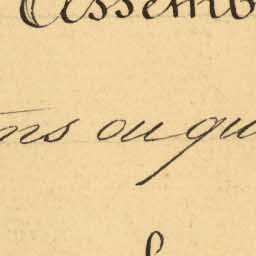 Assemb
ns ou qu